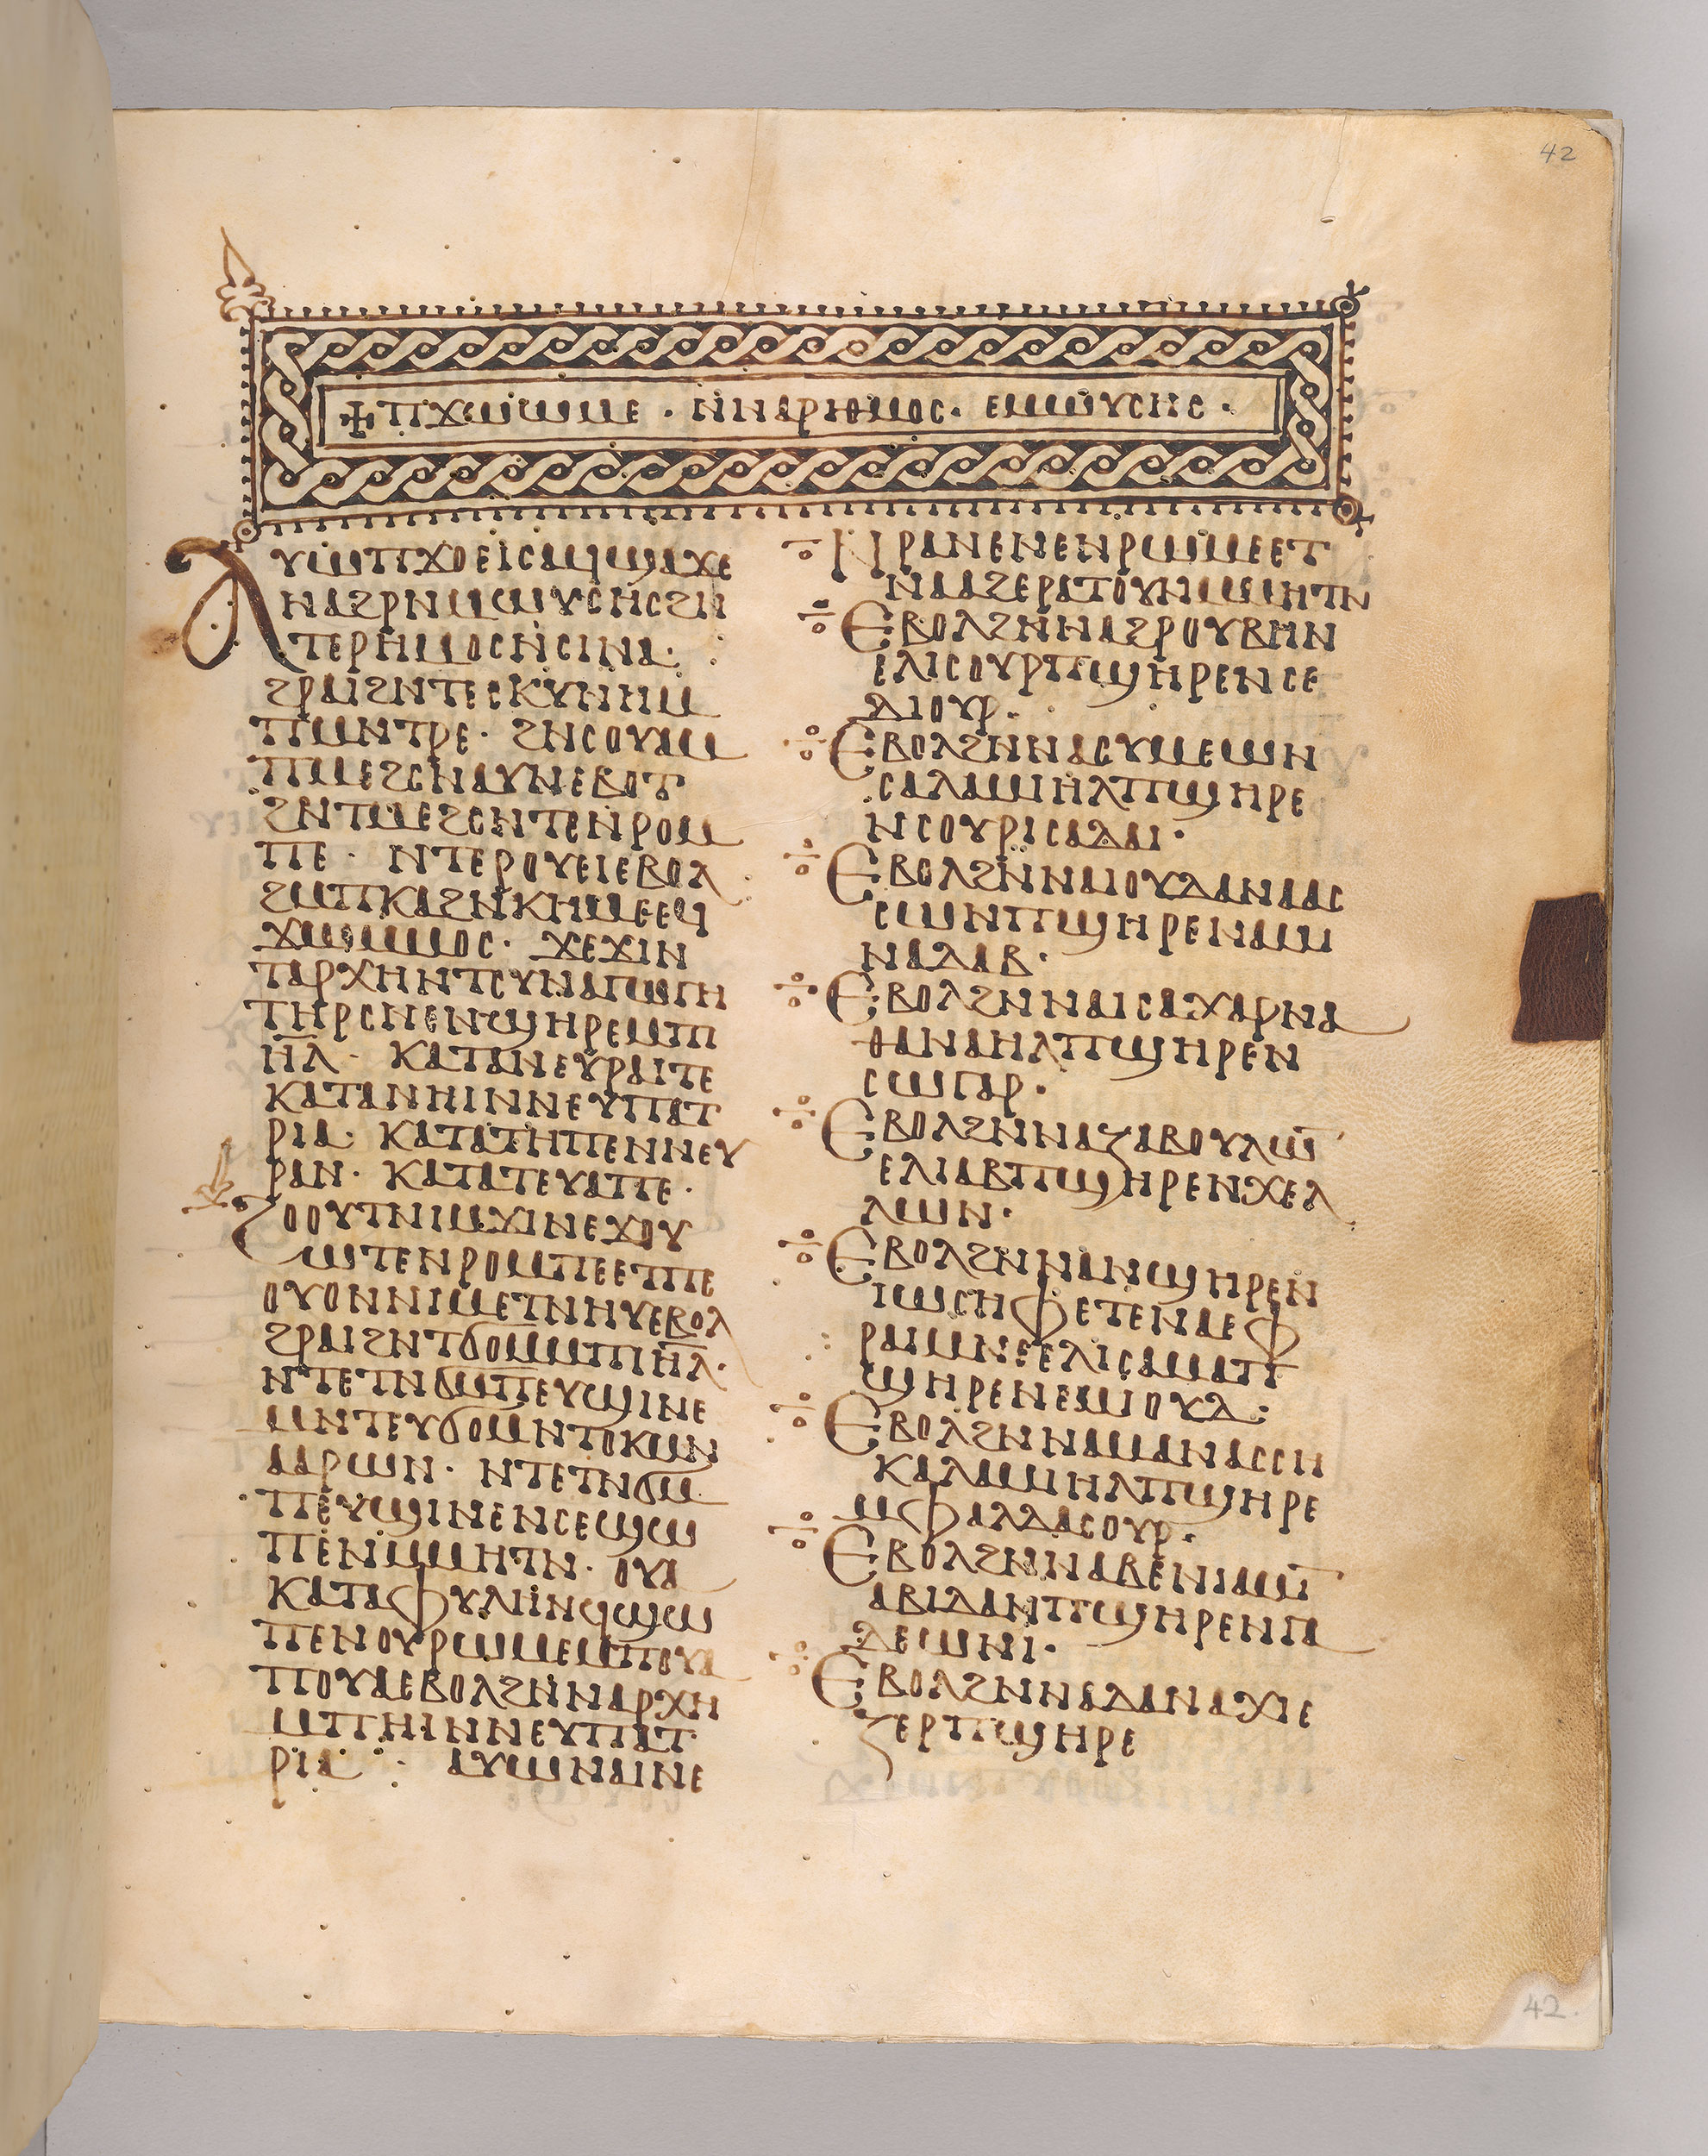 42
✠ ⲡϫⲱⲱⲙⲉ · ⲛ̄ⲛⲁⲣⲓⲑⲙⲟⲥ · ⲉⲙⲱⲩⲥⲏⲥ ·
ⲁⲩⲱⲡϫⲟⲉⲓⲥⲁϥϣⲁϫⲉ
ⲛⲁϩⲣⲛⲙⲱⲩⲥⲏⲥϩⲓ
ⲧⲉⲣⲏⲙⲟⲥⲛ̇ⲥⲓⲛⲁ·
ϩⲣⲁⲓϩⲛⲧⲉⲥⲕⲩⲛⲏⲙ
ⲡⲙⲛⲧⲣⲉ · ϩⲛⲥⲟⲩⲁⲙ
ⲡⲙⲉϩⲥⲛⲁⲩⲛⲉⲃⲟⲧ
ϩⲛⲧⲙⲉϩⲥⲛⲧⲉⲛ̇ⲣⲟⲙ
ⲡⲉ · ⲛⲧⲉⲣⲟⲩⲉⲓⲉⲃⲟⲗ
ϩⲙⲡⲕⲁϩⲛ̇ⲕⲏⲙⲉⲉϥ
ϫⲱⲙⲙⲟⲥ · ϫⲉϫⲓⲛ
ⲧⲁⲣⲭⲏⲛⲧⲥⲩⲛⲁⲅⲱⲅⲏ
ⲧⲏⲣⲥⲛⲉⲛϣⲏⲣⲉⲙⲡ
ⲓ̄ⲏ̄ⲗ · ⲕⲁⲧⲁⲛⲉⲩⲣⲁⲓⲧⲉ
ⲕⲁⲧⲁⲛⲏⲓⲛⲛⲉⲩⲡⲁⲧ
ⲣⲓⲁ · ⲕⲁⲧⲁⲧⲏⲡⲉⲛⲛⲉⲩ
ⲣⲁⲛ · ⲕⲁⲧⲁⲧⲉⲩⲁⲡⲉ ·
ϩⲟⲟⲩⲧⲛⲓⲙϫⲓⲛⲉϫⲟⲩ
ⲱⲧⲉⲛⲣⲟⲙⲡⲉⲉⲧⲡⲉ
ⲟⲩⲟⲛⲛⲓⲙⲉⲧⲛⲏⲩⲉⲃⲟⲗ
ϩⲣⲁⲓϩⲛⲧϭⲟⲙⲙⲡⲓⲏ̄ⲗ ·
ⲛⲧⲉⲧⲛϭⲙⲡⲉⲩϣⲓⲛⲉ
ⲙⲛⲧⲉⲩϭⲟⲙⲛⲧⲟⲕⲙⲛ
ⲁⲁⲣⲱⲛ · ⲛⲧⲉⲧⲛϭⲙ
ⲡⲉⲩϣⲓⲛⲉⲛⲥⲉϣⲱ
ⲡⲉⲛⲙⲙⲏⲧⲛ · ⲟⲩⲁ
ⲕⲁⲧⲁⲫⲩⲗⲏⲛϥϣⲱ
ⲡⲉⲛⲟⲩⲣⲱⲙⲉⲙⲡⲟⲩⲁ
ⲡⲟⲩⲁⲉⲃⲟⲗϩⲛ̇ⲛⲁⲣⲭⲏ
ⲙⲡⲏⲓⲛⲛⲉⲩⲡⲁⲧ
ⲣⲓⲁ · ⲁⲩⲱⲛⲁⲓⲛⲉ
ⲛⲣⲁⲛⲉⲛⲉⲛⲣⲱⲙⲉⲉⲧ
ⲛⲁⲁϩⲉⲣⲁⲧⲟⲩⲛⲙⲙⲏⲧⲛ
ⲉⲃⲟⲗϩⲛ̇ⲛⲁϩⲣⲟⲩⲃⲏⲛ
ⲉⲗⲓⲥⲟⲩⲣⲡϣⲏⲣⲉⲛⲥⲉ
ⲇⲓⲟⲩⲣ ·
ⲉⲃⲟⲗϩⲛⲛⲁⲥⲩⲙⲉⲱⲛ
ⲥⲁⲗⲁⲙⲓⲏⲗⲡϣⲏⲣⲉ
ⲛⲥⲟⲩⲣⲓⲥⲁⲇⲁⲓ ·
ⲉⲃⲟⲗϩⲛⲛⲁⲓⲟⲩⲇⲁⲛⲁⲁⲥ
ⲥⲱⲛⲡϣⲏⲣⲉⲛⲁⲙⲓ
ⲛⲁⲇⲁⲃ ·
ⲉⲃⲟⲗϩⲛⲛⲁⲓⲥⲁⲭⲁⲣⲛⲁ
ⲑⲁⲛⲁⲏⲗⲡϣⲏⲣⲉⲛ
ⲥⲱⲅⲁⲣ ·
ⲉⲃⲟⲗϩⲛⲛⲁⲍⲁⲃⲟⲩⲗⲱ̄
ⲉⲗⲓⲁⲃⲡϣⲏⲣⲉⲛⲭⲉⲗ
ⲗⲱⲛ ·
ⲉⲃⲟⲗϩⲛⲛⲁⲛϣⲏⲣⲉⲛ
ⲓⲱⲥⲏⲫⲉⲧⲉⲛⲁⲉⲫ
ⲣⲁⲓⲙⲛⲉⲉⲗⲓⲥⲁⲙⲁⲡ
ϣⲏⲣⲉⲛⲉⲙⲓⲟⲩⲇ :
ⲉⲃⲟⲗϩⲛⲛⲁⲙⲁⲛⲁⲥⲥⲏ
ⲕⲁⲗⲁⲙⲓⲏⲗⲡϣⲏⲣⲉ
ⲙⲫⲁⲗⲇⲁⲥⲟⲩⲣ ·
ⲉⲃⲟⲗϩⲛⲛⲁⲃⲉⲛⲓⲁⲙⲓ̄
ⲁⲃⲓⲇⲁⲛⲡϣⲏⲣⲉⲛⲅⲁ
ⲇⲉⲱⲛⲓ ·
ⲉⲃⲟⲗϩⲛⲛⲁⲇⲁⲛⲁⲭⲓⲉ
ⲍⲉⲣⲡϣⲏⲣⲉ
42.